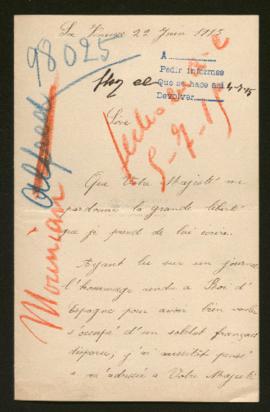 La Finence 22 Juin 1915
98025
A
Pedir informes
Que se hace así
Devolver
Hoy el
4-7-15
Sire
5-7-15
Alfred
Mounian
Que Votre Majesté me
pardonne la grande liberté
que je prend de lui écrire.
Ayant lu sur un journal
l'hommage rendu a Roi d'
Espagne pour avoir bien voulu
s'occupé d'un soldat français
disparu, j'ai aussitôt pensé
a m'adressé a Votre Majesté